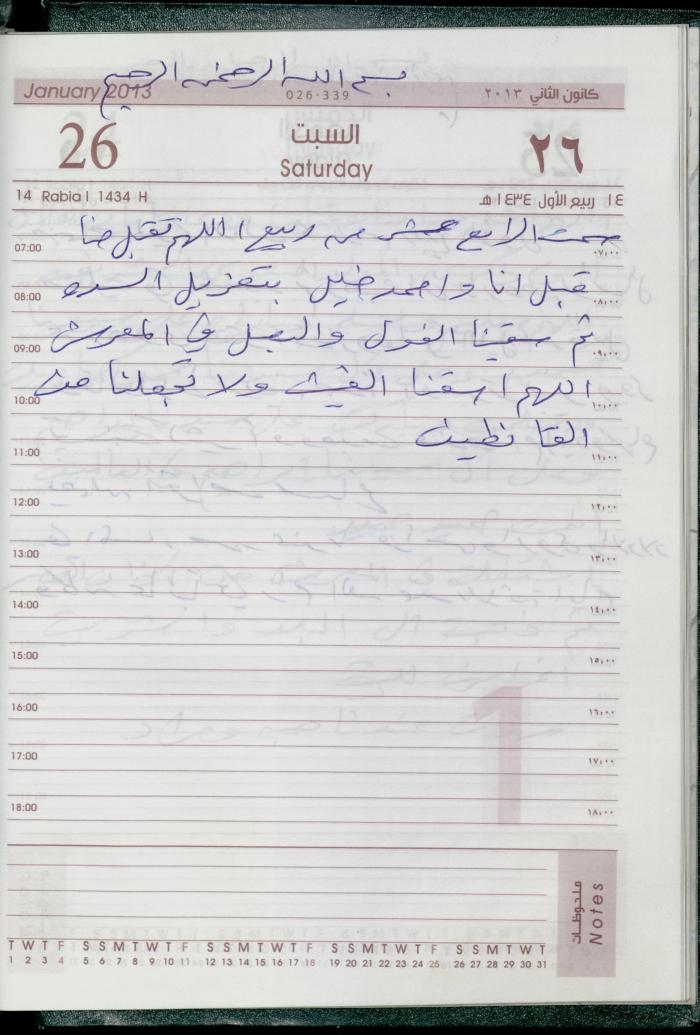 بسم الله الرحمن الرحيم
January 2013 026-339 كانون الثاني ٢٠١٣
26 السبت ٢٦
Saturday
14 Rabia I 1434 H ١٤ ربيع الأول ١٤٣٤ هـ
صمت الرابع عشر من ربيع ١ اللهم تقبل منا
07:00 ٠٧,٠٠
قبل انا واحمد خليل بتعزيل السده
08:00 ٠٨,٠٠
ثم سقينا الفول والبصل في المعرش
09:00 ٠٩,٠٠
اللهم اسقنا الغيث ولا تجعلنا من
10:00 ١٠,٠٠
القانطين
11:00 ١١,٠٠
12:00 ١٢,٠٠
13:00 ١٣,٠٠
14:00 ١٤,٠٠
15:00 ١٥,٠٠
16:00 ١٦,٠٠
17:00 ١٧,٠٠
18:00 ١٨,٠٠
1
ملحوظات
Notes
T W T F S S M T W T F S S M T W T F S S M T W T F S S M T W T
1 2 3 4 5 6 7 8 9 10 11 12 13 14 15 16 17 18 19 20 21 22 23 24 25 26 27 28 29 30 31